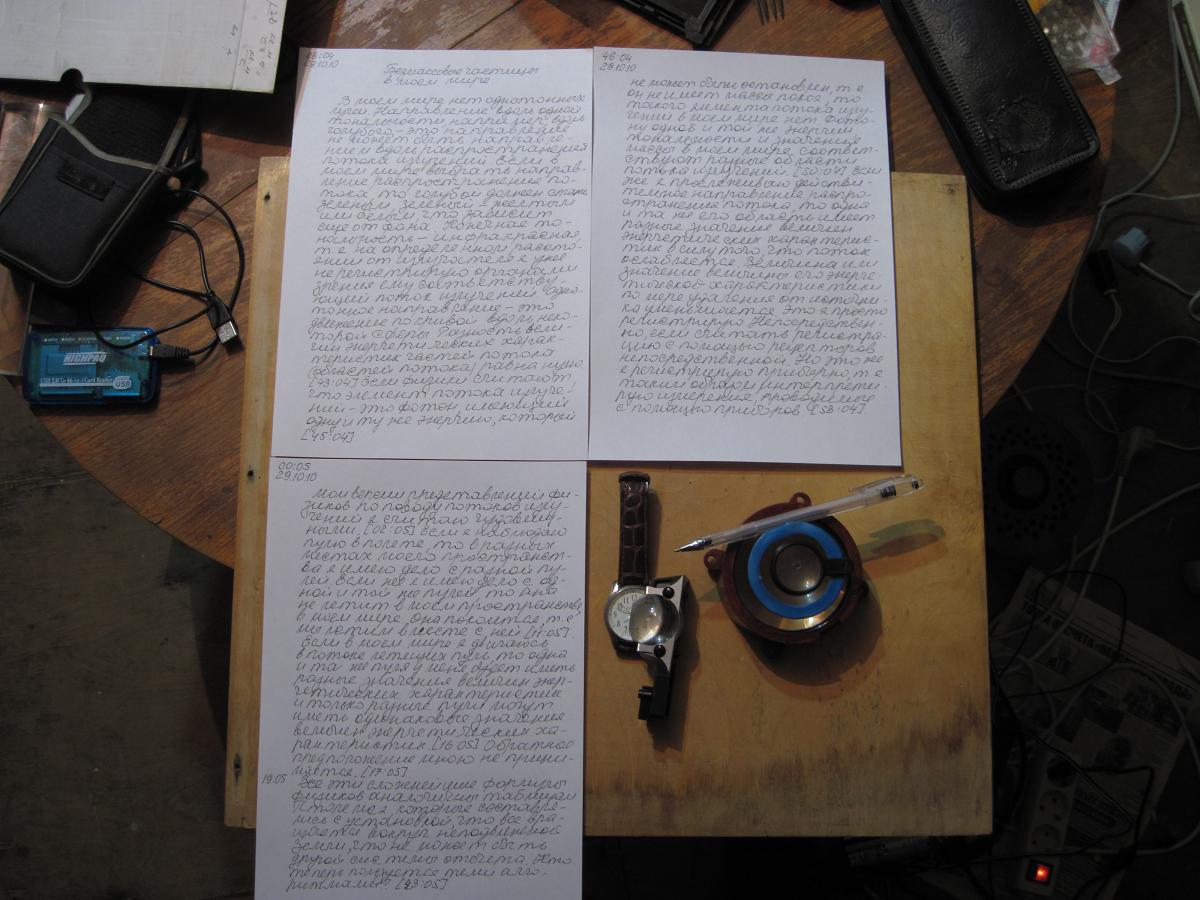 28:04
29.10.10
Безмассовые частицы
в моём мире
В моём мире нет однотонных
лучей. Направление вдоль одной
тональности например вдоль
голубого – это направление
не может быть направле-
нием вдоль распространения
потока излучений. Если в
моём мире выбрать направ-
ление распространения по-
тока, то голубой должен стать
зелёным, зелёный – жёлтым
или белым, что зависит
ещё от фона. Конечная то-
нальность – инфракрасная
т.е на определённом рассто-
янии от излучателя я уже
не регистрирую органами
зрения ему соответству-
ющий поток излучений. Одно-
тонное направление – это
движение по кривой вдоль неко-
торой сферы. Разность вели-
чин энергетических харак-
теристик частей потока
(областей потока) равна нулю
[43:04] Если физики считают,
что элемент потока излуче-
ний – это фотон, имеющий
одну и ту же энергию, который
[45:04]
46:04
29.10.10
не может быть остановлен, т.е
он не имеет массы покоя, то
такого элемента потока излу-
чений в моём мире нет. Фото-
ны одной и той же энергии
тональности и значения
массы в моём мире соответ-
ствуют разные области
потока излучений. [50:04] Если
же я прослеживаю действи-
тельное направление распро-
странения потока, то одна
и та же его область имеет
разные значение величин
энергетических характерис-
тик в силу того, что поток
ослабляется. Величина или
значение величины его энерге-
тической характеристики
по мере удаления от источни-
ка уменьшается. Это я просто
регистрирую. Непосредствен-
но, если считать регистра-
цию с помощью рецепторов
непосредственной. Это же
я регистрирую приборно, т.е
таким образом интерпрети-
рую измерения, проводимые
с помощью приборов. [58:04]
00:05
29.10.10
Мои версии представлений фи-
зиков по поводу потоков излу-
чений я считаю чудовищ-
ными [02:05] Если я наблюдаю
пулю в полёте, то в разных
местах моего пространст-
ва я имею дело с разной пу-
лей. Если же я имею дело с од-
ной и той же пулей, то она
не летит в моём пространстве,
в моём мире. Она покоится, т.е
мы летим вместе с ней [11:05].
Если в моём мире я двигаюсь
в потоке летящих пуль, то одна
и та же пуля у меня будет иметь
разные значения величин энер-
гетических характеристик
и только разные пули могут
иметь одинаковые значения
величин энергетических ха-
рактеристик [16:05] Обратное
предположение мною не прини-
мается. [17:05]
19:05 Все эти сложнейшие формулы
физиков аналогичны таблицам
Птолемея, которые составля-
лись с установкой, что все вра-
щается вокруг неподвижной
Земли, что не может быть
другой системы отсчёта. Кто
теперь пользуется теми алго-
ритмами? [23:05]
HIGHPAQ
USB